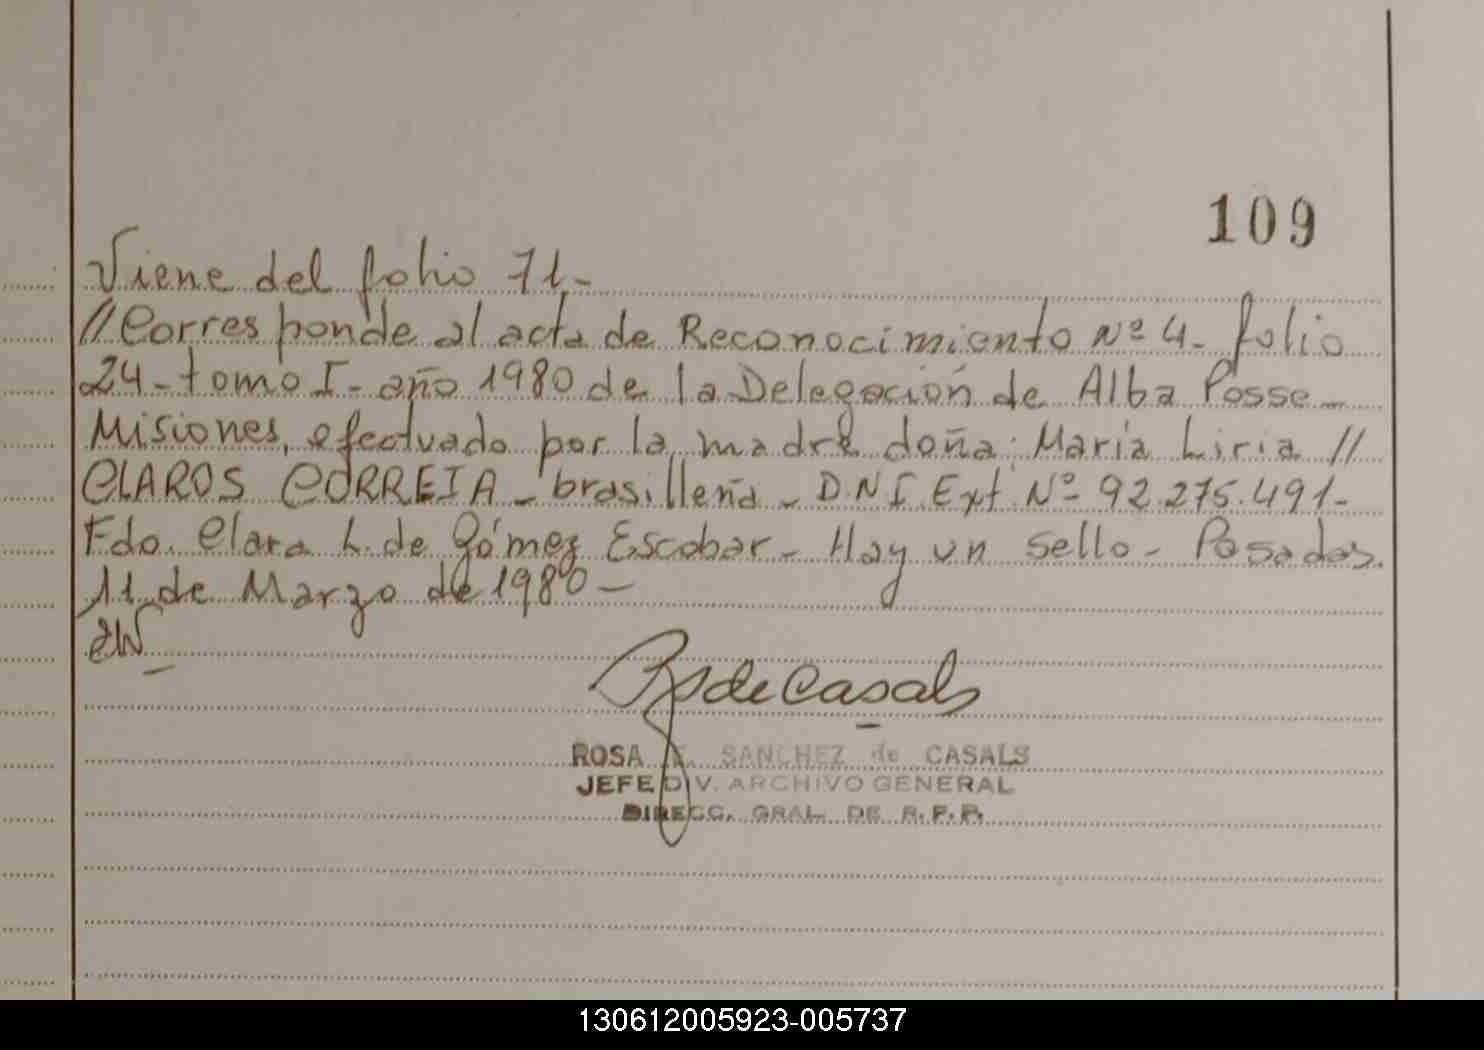 109
Viene del folio 71-
// Corresponde al acta de Reconocimiento Nº 4- folio
24- tomo I- año 1980 de la Delegación de Alba Posse-
Misiones, efectuado por la madre doña: Maria Liria //
CLAROS CORREIA- brasilleña- D.N.I. Ext. Nº 92.275.491-
Fdo. Clara L. de Gómez Escobar- Hay un sello- Posadas.
11 de Marzo de 1980-
de Casals
ROSA E. SANCHEZ de CASALS
JEFE DIV. ARCHIVO GENERAL
DIRECC. GRAL. DE R.P.P.
130612005923-005737